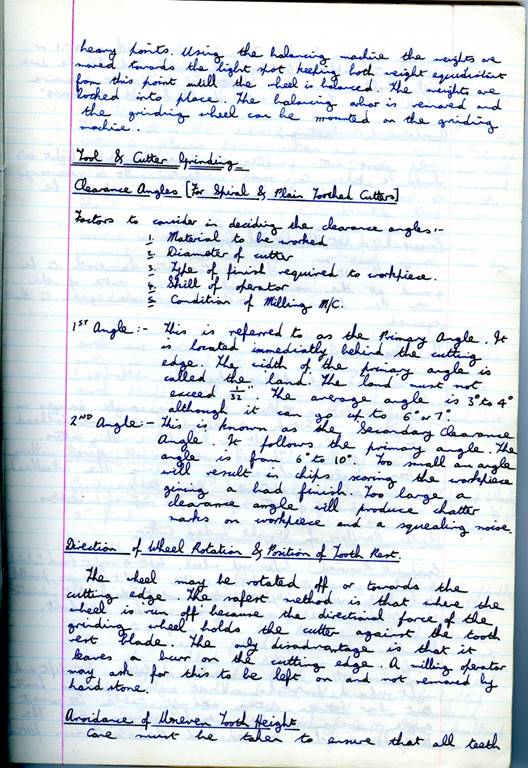 heavy points. Using the balancing machine the weights are
moved towards the light spot keeping both weight equidistant
from this point untill the wheel is balanced. The weights are
locked into place. The balancing arbor is removed and
the grinding wheel can be mounted on the grinding
machine.
Tool & Cutter Grinding
Clearance Angles [For Spiral & Plain Toothed Cutters]
Factors to consider in deciding the clearance angles:-
1. Material to be worked
2. Diameter of cutter
3. Type of finish required to workpiece.
4. Skill of operator
5. Condition of Milling M/C.
1ST Angle:- This is referred to as the Primary Angle. It
is located immediatly behind the cutting
edge. The width of the primary angle is
called the land. The land must not
exceed 1/32". The average angle is 3° to 4°
although it can go up to 6° or 7°.
2ND Angle:- This is known as the Secondary Clearance
Angle. It follows the primary angle. The
angle is from 6° to 10°. Too small an angle
will result in chips scoring the workpiece
giving a bad finish. Too large a
clearance angle will produce chatter
marks on workpiece and a squealing noise.
Direction of Wheel Rotation & Position of Tooth Rest.
The wheel may be rotated off or towards the
cutting edge. The safest method is that where the
wheel is run off because the directional force of the
grinding wheel holds the cutter against the tooth
rest blade. The only disadvantage is that it
leaves a burr on the cutting edge. A milling operator
may ask for this to be left on and not removed by
hand stone.
Avoidance of Uneven Tooth Height
Care must be taken to ensure that all teeth